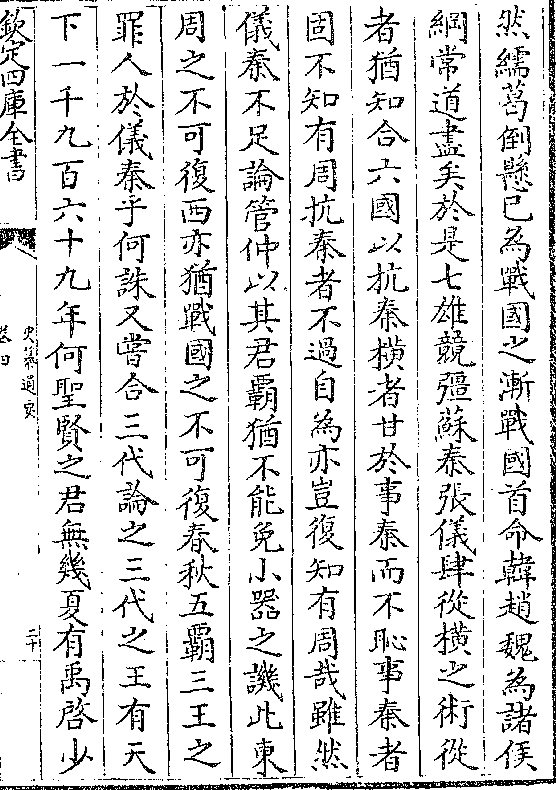 然繻葛倒懸已為戰國之漸戰國首命韓趙魏為諸侯
綱常道盡矣於是七雄競彊蘇秦張儀肆從橫之術從
者猶知合六國以抗秦橫者甘於事秦而不恥事秦者
固不知有周抗秦者不過自為亦豈復知有周哉雖然
儀秦不足論管仲以其君霸猶不能免小器之譏此東
周之不可復西亦猶戰國之不可復春秋五霸三王之
罪人於儀秦乎何誅又嘗合三代論之三代之王有天
下一千九百六十九年何聖賢之君無幾夏有禹啓少
欽定四庫全書
卷四
二十